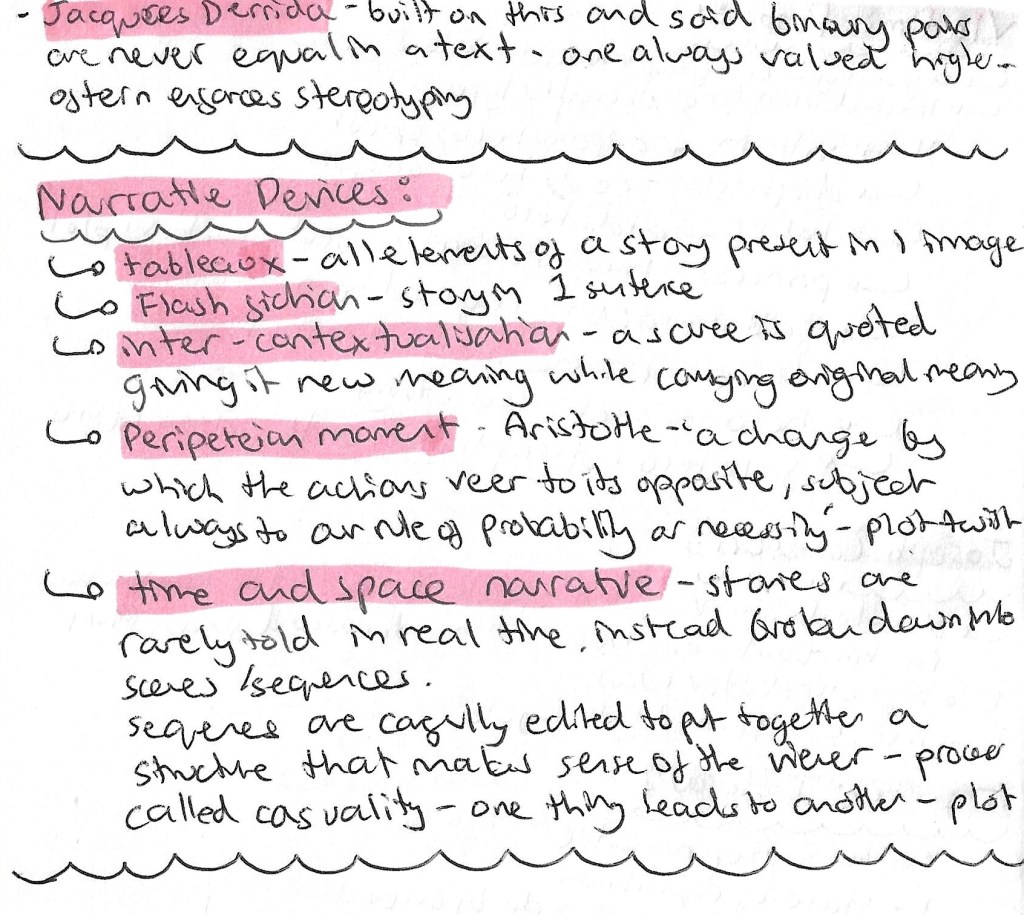 - Jacques Derrida - built on this and said binary pairs
are never equal in a text - one always valued higher -
oftern enforces stereotyping
Narrative Devices:
tableaux - all elements of a story present in 1 image
Flash fiction - story in 1 sentence
inter-contextualisation - a scene is quoted
giving it new meaning while carrying original meaning
Peripeteian moment - Aristotle - 'a change by
which the actions veer to its opposite, subject
always to our rule of probability or necessity' - plot twist
time and space narrative - stories are
rarely told in real time, instead broken down into
scenes / sequences.
sequences are carefully edited to put together a
structure that makes sense of the viewer - process
called casuality - one thing leads to another - plot